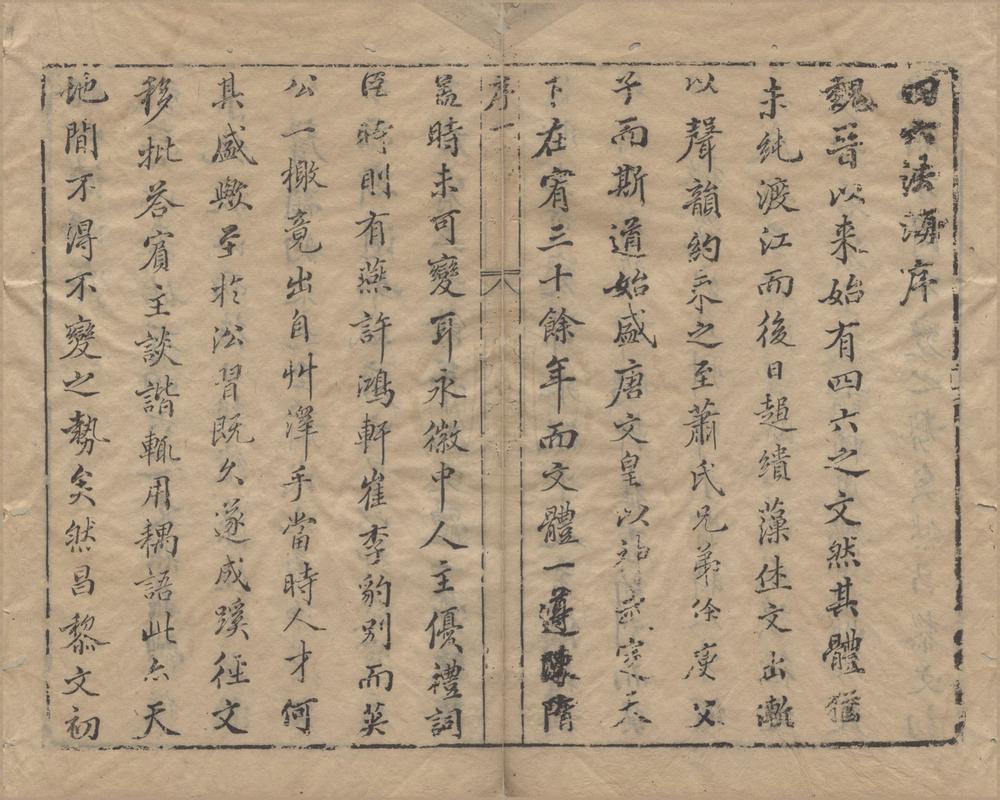 四六法海序
魏晉以來始有四六之文然其體猶
未純渡江而後日趨繢藻休文出漸
以聲韻約束之至蕭氏兄弟徐庾父
子而斯道始盛唐文皇以神武定天
下在宥三十餘年而文體一遵陳隋
序一
蓋時未可變耳永徽中人主優禮詞
臣時則有燕許鴻軒崔李豹別而英
公一檄竟出自艸澤手當時人才何
其盛歟至於沿習既久遂成蹊徑文
移批荅賓主談諧輒用耦語此亦天
地間不得不變之勢矣然昌黎文初